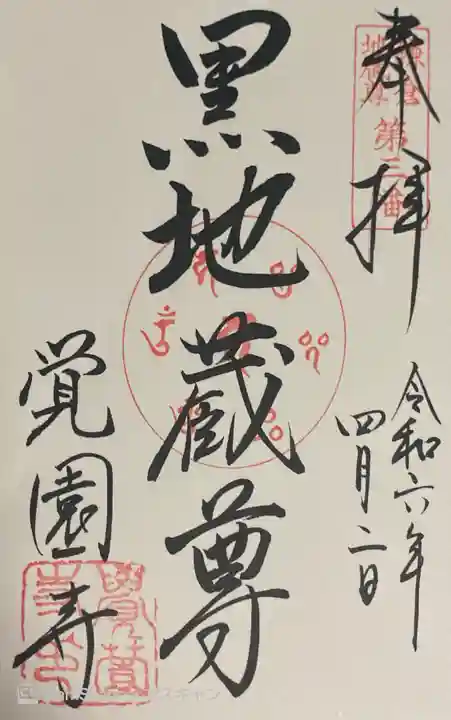 奉拝
鎌倉
地蔵尊
第三番
令和六年
四月二日
黒地蔵尊
覚園寺